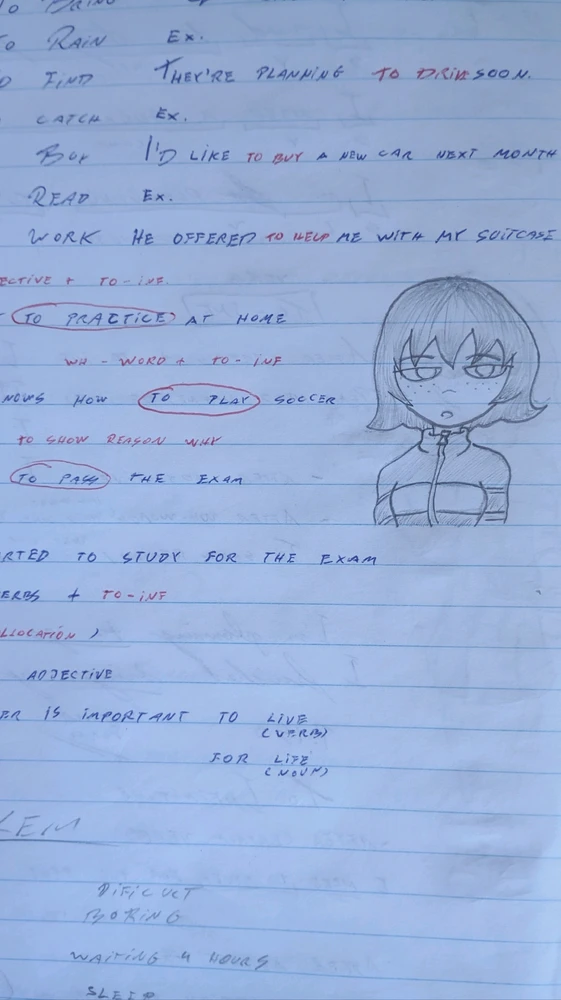 TO RAIN EX.
FIND THEY'RE PLANNING TO DRIVE SOON.
CATCH EX.
BUY I'D LIKE TO BUY A NEW CAR NEXT MONTH
READ EX.
WORK HE OFFERED TO HELP ME WITH MY SUITCASE
ECTIVE + TO-INF.
TO PRACTICE AT HOME
WH - WORD + TO - INF
NOWS HOW TO PLAY SOCCER
TO SHOW REASON WHY
TO PASS THE EXAM
RTED TO STUDY FOR THE EXAM
ERBS + TO-INF
LLOCATION)
ADJECTIVE
ER IS IMPORTANT TO LIVE
(VERB)
FOR LIFE
(NOUN)
LEM
DIFICULT
BORING
WAITING 4 HOURS
SLEEP